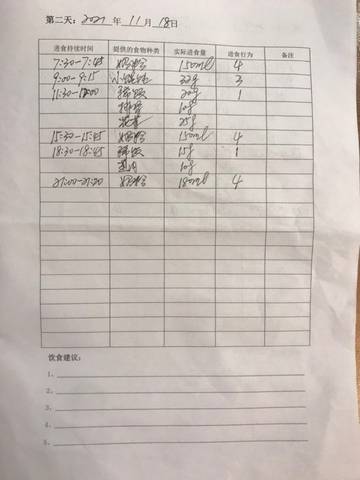 第二天：2021 年 11 月 18 日
进食持续时间 提供的食物种类 实际进食量 进食行为 备注
7:30-7:45 奶粉 150ml 4
9:00-9:15 32g 3
11:30-12:00 稀饭 20g 1
排骨 10g
25g
15:30-15:45 奶粉 150ml 4
18:30-18:45 稀饭 15g 1
10g
21:00-21:20 奶粉 180ml 4
饮食建议：
1、
2、
3、
4、
5、